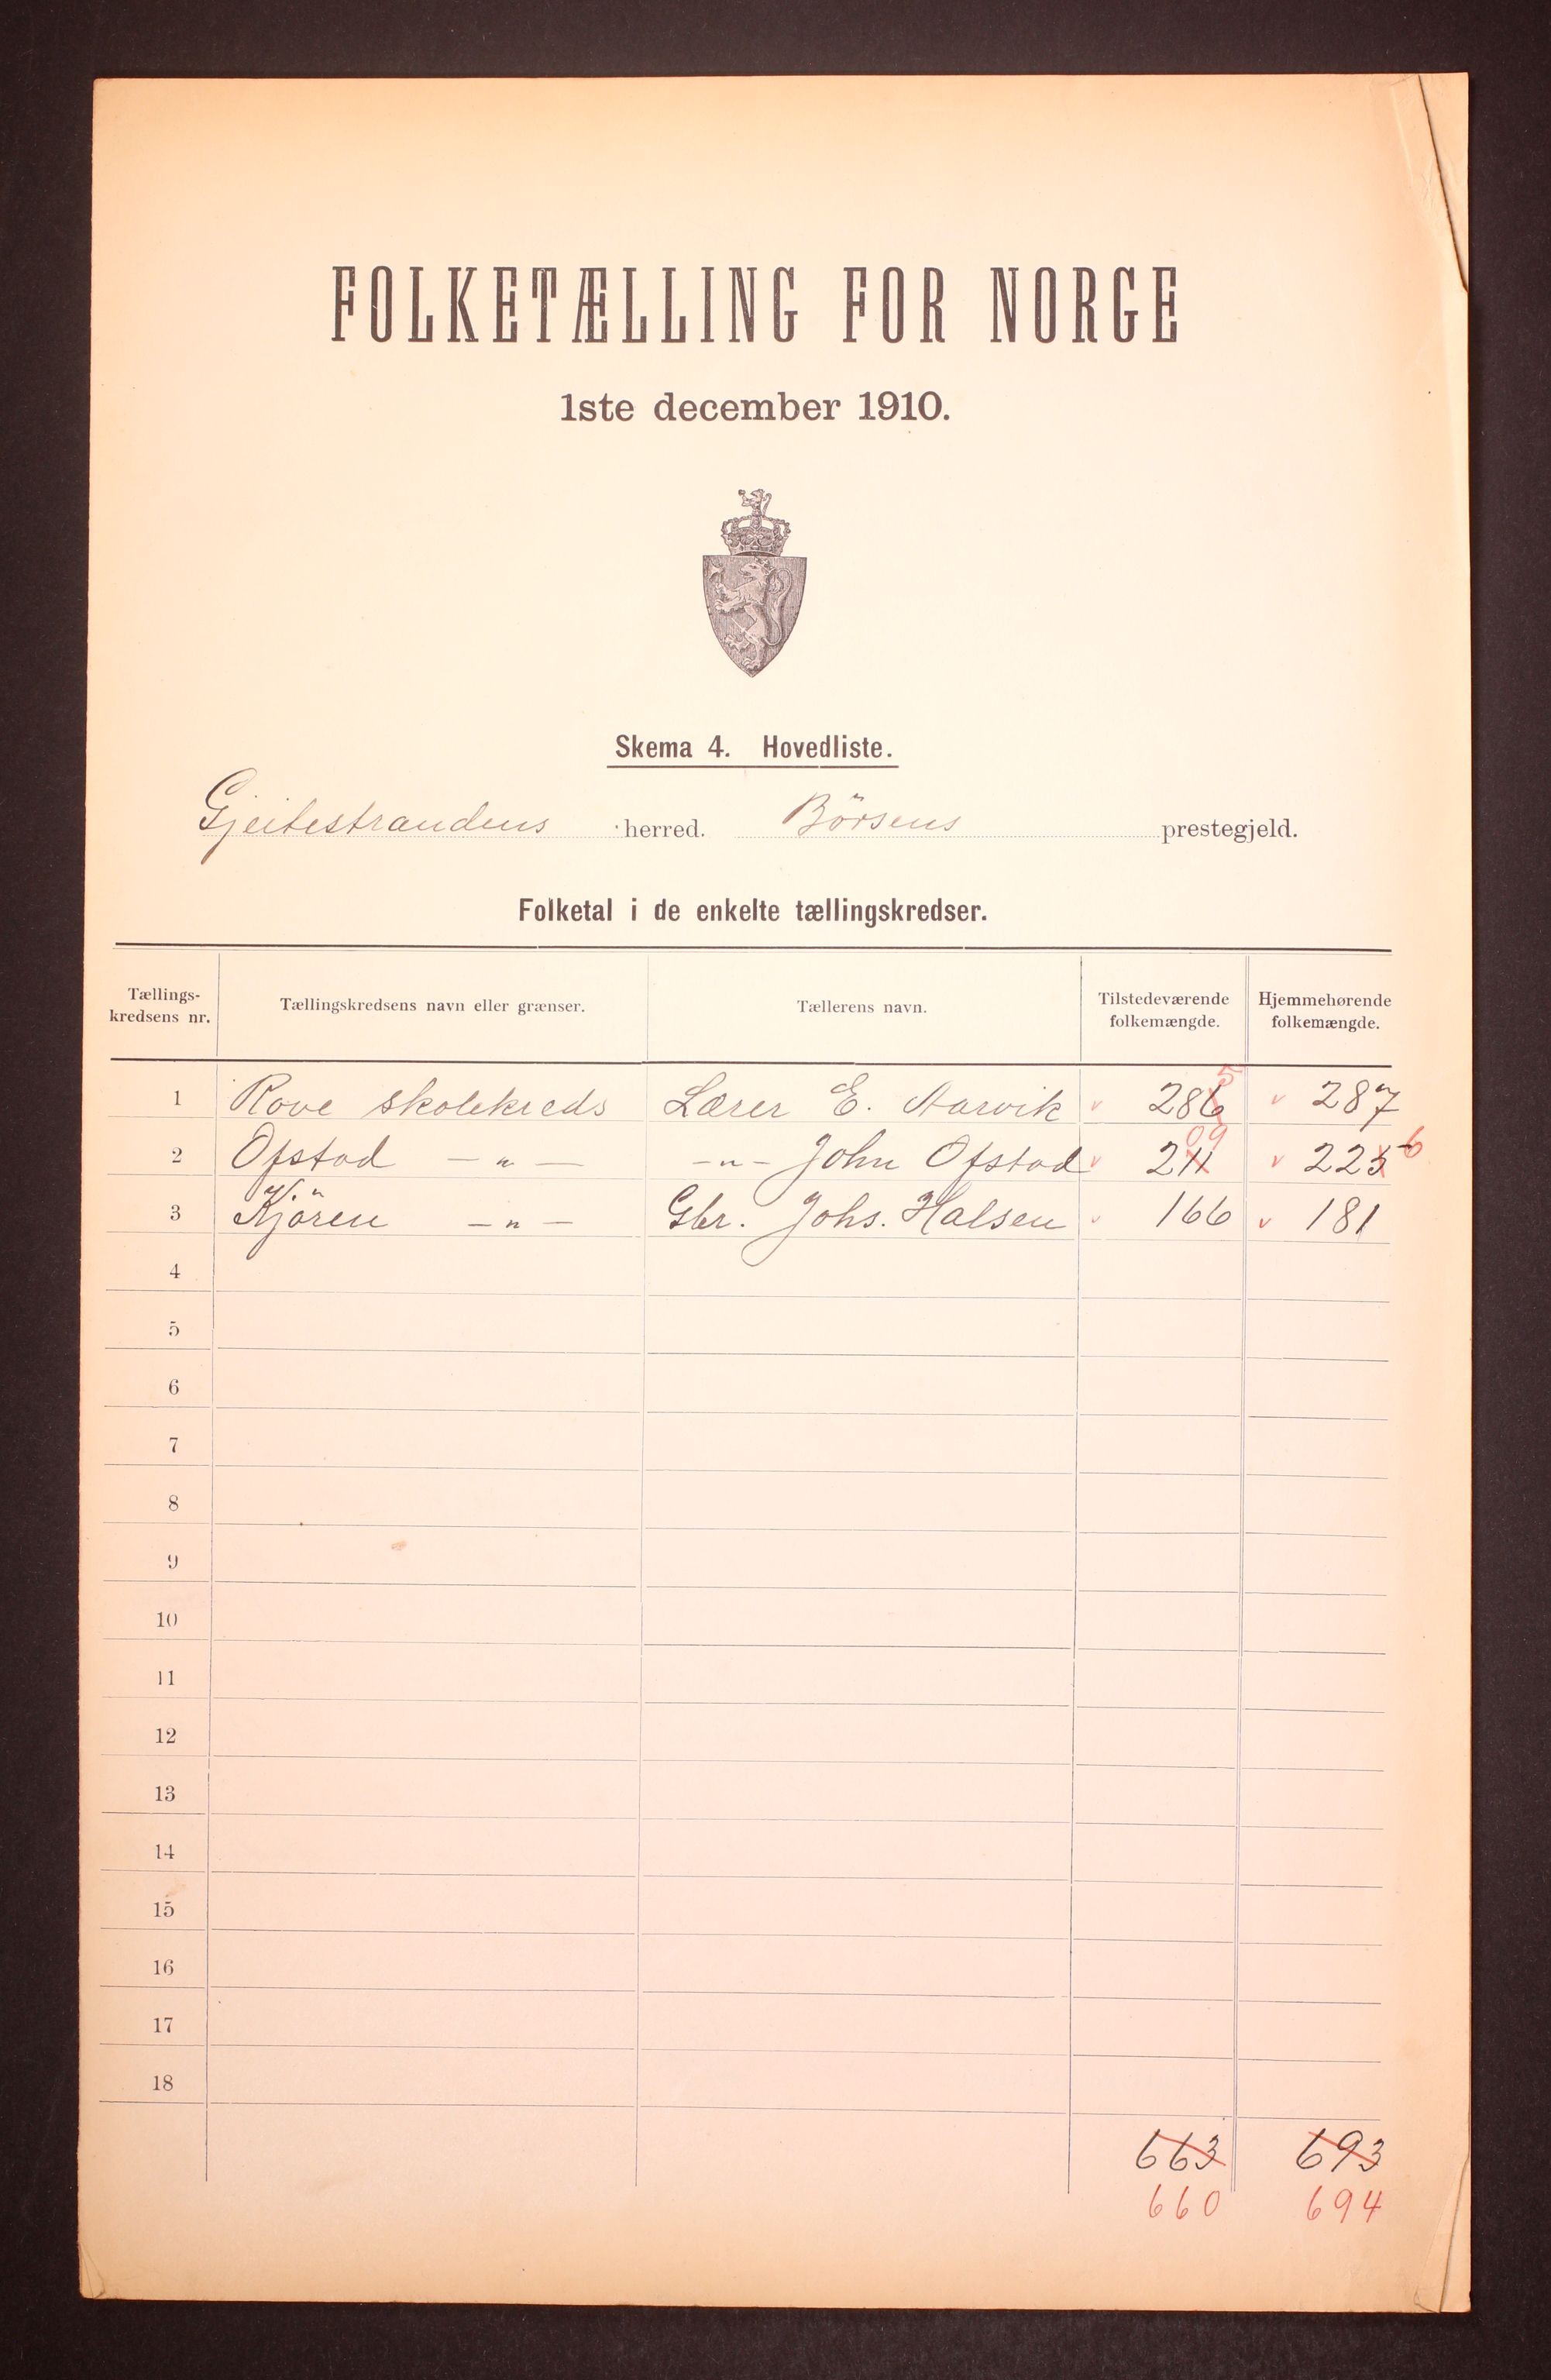 FOLKETÆLLING FOR NORGE
1ste december 1910.
Skema 4. Hovedliste.
Gjeitestrandens herred. Börsens prestegjeld.
Folketal i de enkelte tællingskredser.
Tællings-kredsens nr. Tællingskredsens navn eller grænser. Tællerens navn. Tilstedeværende folkemængde. Hjemmehørende folkemængde.
5
1 Rove skolekreds Lærer E. Aarvik v 286 v 287
09
2 Ofstad — " — -"- John Ofstad v 211 v 225 6
3 Kjören — " — Gbr. Johs. Halsen v 166 v 181
4
5
6
7
8
9
10
11
12
13
14
15
16
17
18
663 693
660 694